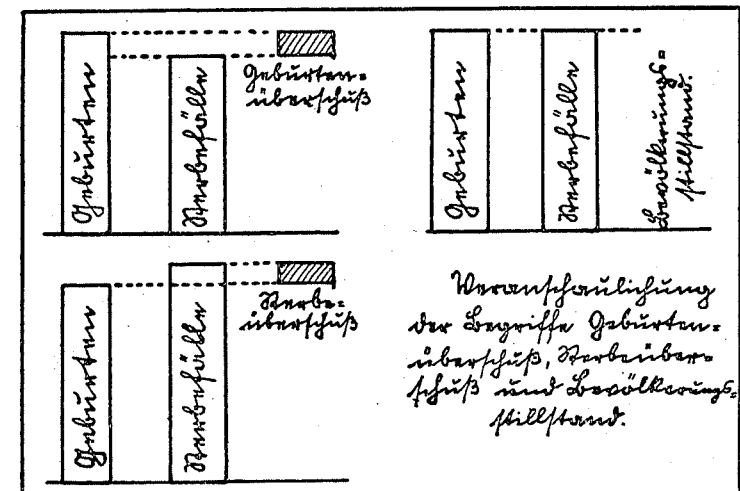 Geburten
Sterbefälle
Geburten=
überschuß
Geburten
Sterbefälle
Bevölkerungs=
stillstand.
Geburten
Sterbefälle
Sterbe=
überschuß
Veranschaulichung
der Begriffe Geburten=
überschuß, Sterbeüber=
schuß und Bevölkerungs=
stillstand.